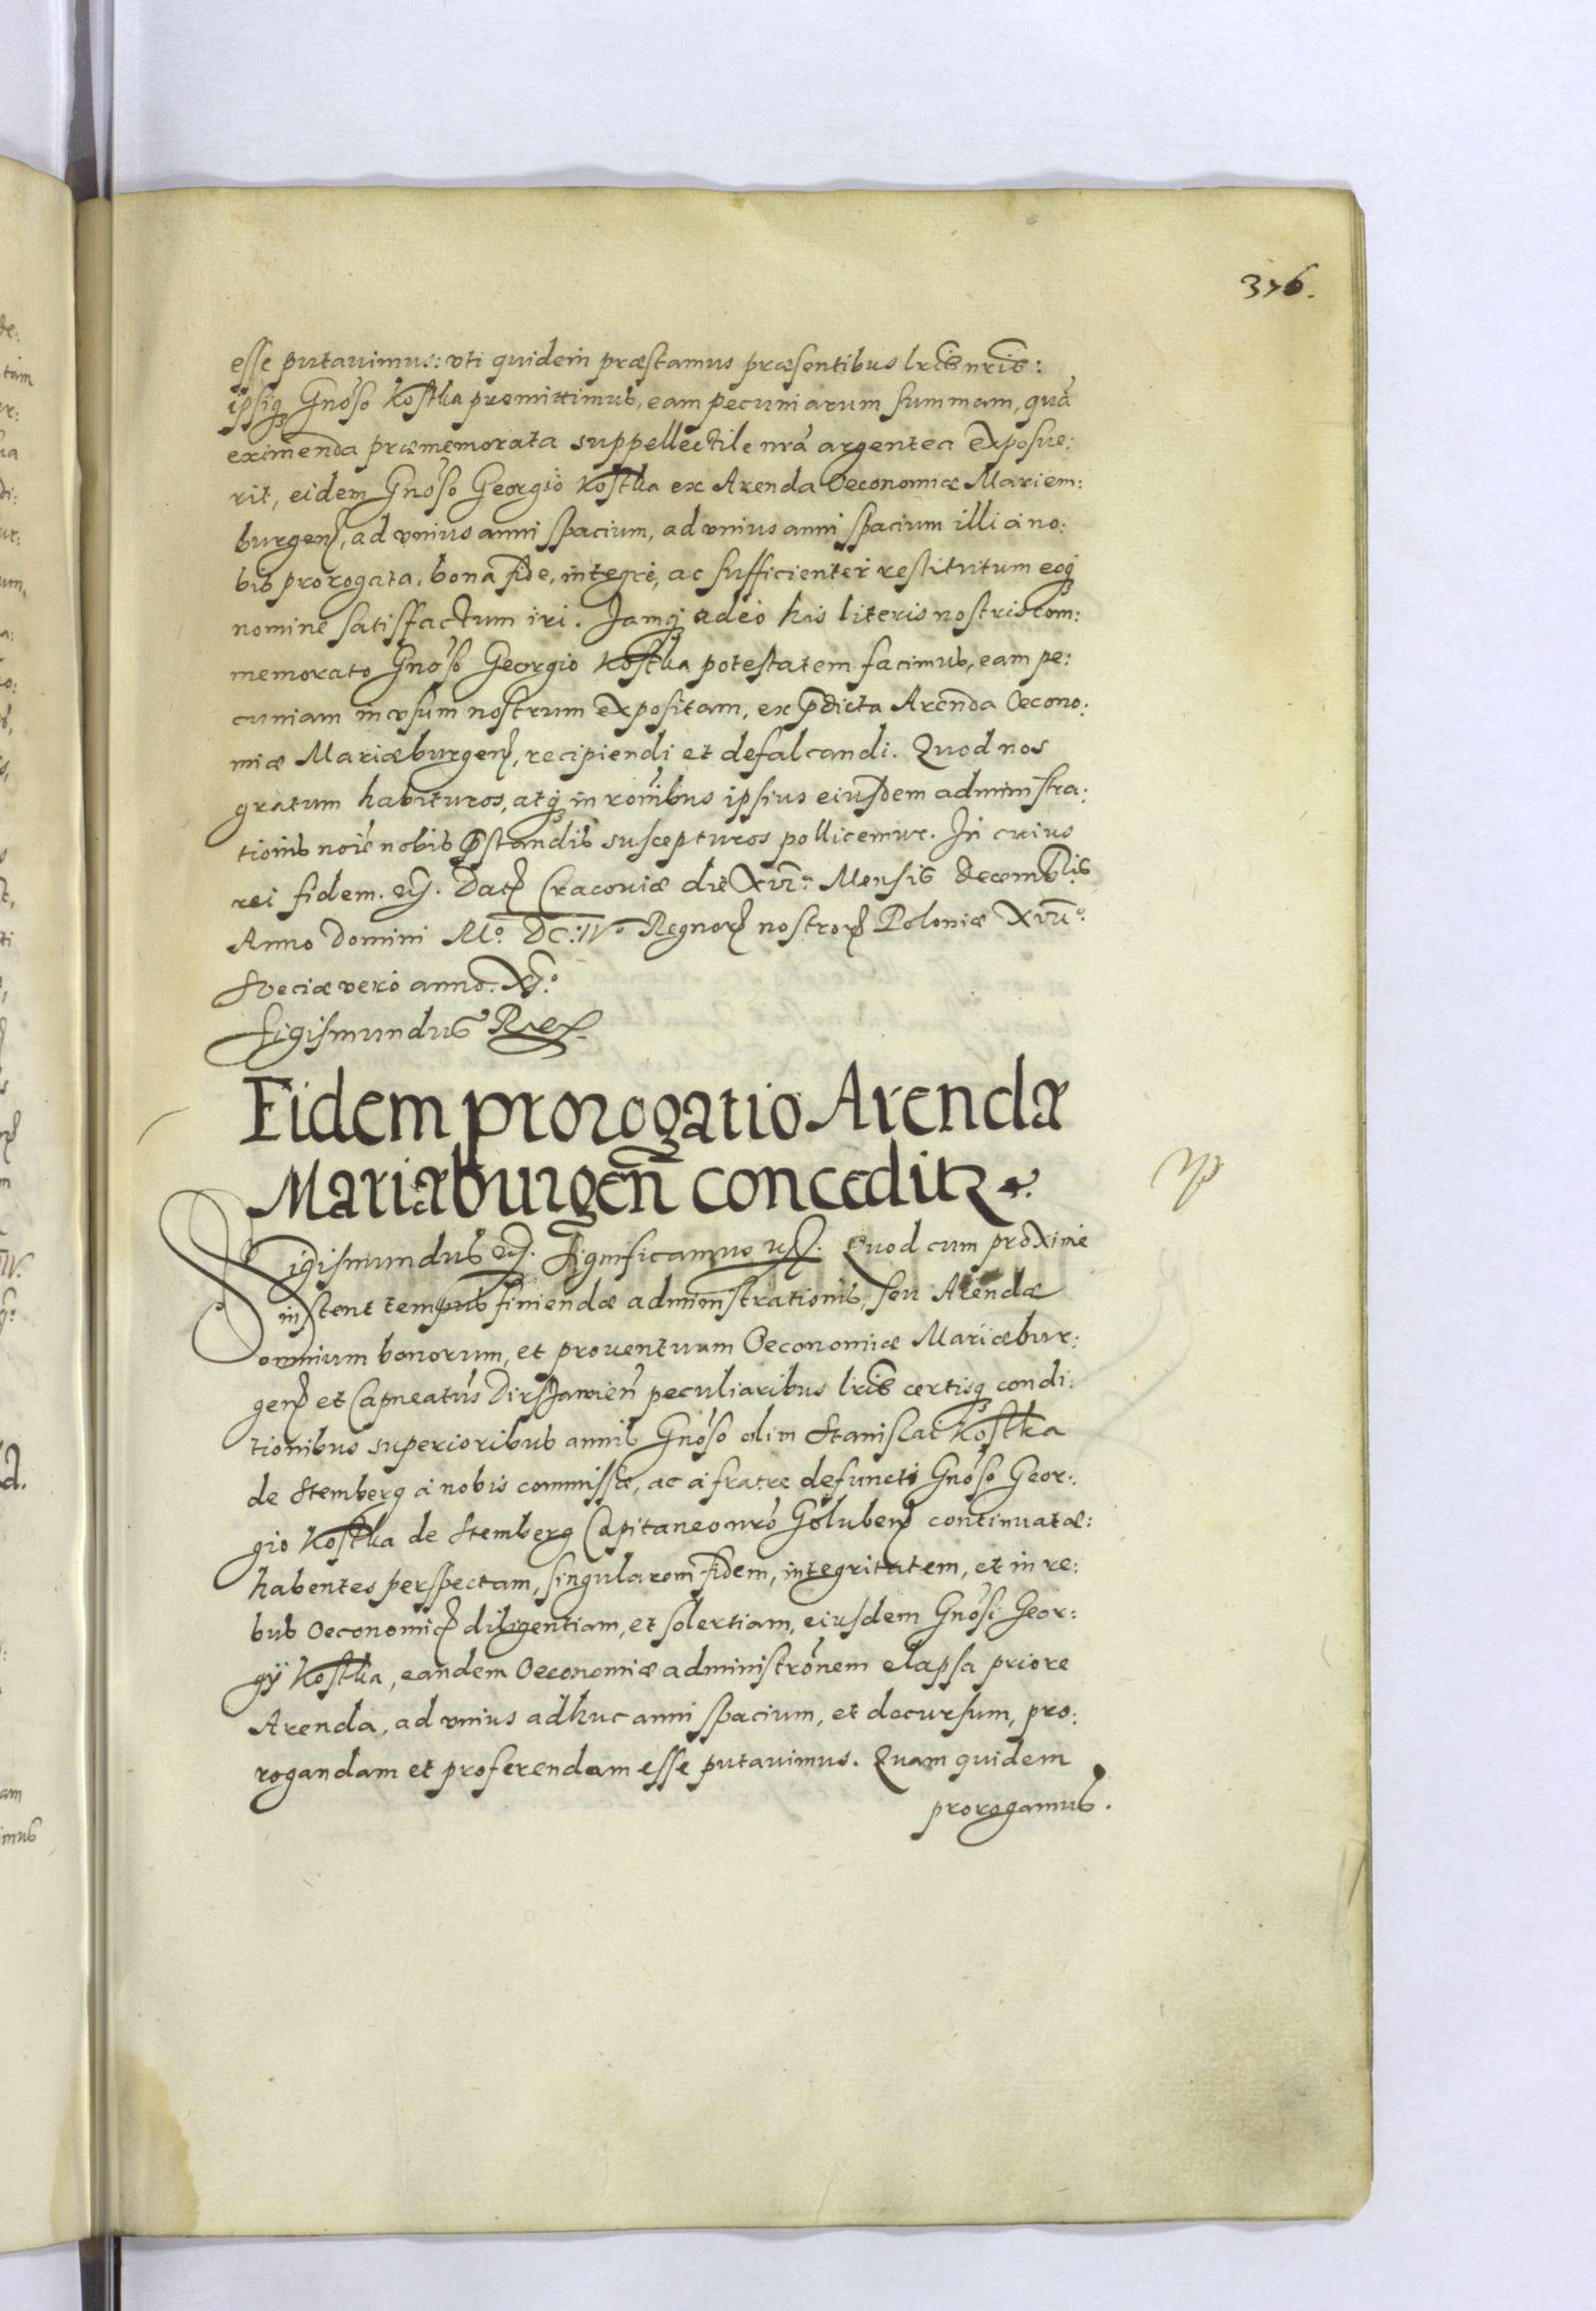 376.
esse putauimus: vti quidem præstamus præsentibus lris nris:
ipsiq Gnoso Kostka promittimus, eam pecuniarum summam, quā
eximenda præmemorata suppellectile nrā argentea exposue:
rit, eidem Gnoso Georgio Kostka ex Arenda Oeconomiæ Mariem:
burgen, ad vnius anni spacium, ad vnius anni spacium illi a no:
bis prorogata, bona fide, integrè, ac sufficienter restitutum eoq
nomine satisfactum iri. Jamq adeò his literis nostris com:
memorato Gnoso Georgio Kostka potestatem facimus, eam pe:
cuniam in vsum nostrum expositam, ex pdicta Arenda Oecono:
miæ Mariæburgen, recipiendi et defalcandi. Quod nos
gratum habituros, atq in ronibus ipsius eiusdem administra:
tionis noie nobis pstandis suscepturos pollicemur. In cuius
rei fidem. etc. Dat Cracouiæ die XVI. Mensis Decembris
Anno Domini Mo. DC.IVo Regnor nostror Poloniæ XVIIo.
Sveciæ verò anno. XIo.
Sigismundus Rex
Eidem prorogatio Arendæ
Mariæburgen conceditr
Sigismundus etc. Significamus etc. Quod cum proximè
instent tempus finiendæ administrationis, seu Arendæ
omnium bonorum, et prouentuum Oeconomiæ Mariæbur:
gen et Capneatus Dirsavien peculiaribus lris certisq condi:
tionibus superioribus annis Gnoso olim Stanislai Kostka
de Stemberg a nobis commissæ, ac a fratre defuncti Gnoso Geor:
gio Kostka de Stemberg Capitaneo nrō Goluben continuatæ:
habentes perspectam, singularem fidem, integritatem, et in re:
bus Oeconomic diligentiam, et solertiam, eiusdem Gnosi Geor:
gÿ Kostka, eandem Oeconomiæ administronem elapsa priore
Arenda, ad vnius adhuc anni spacium, et decursum, pro:
rogandam et proferendam esse putauimus. Quam quidem
prorogamus.